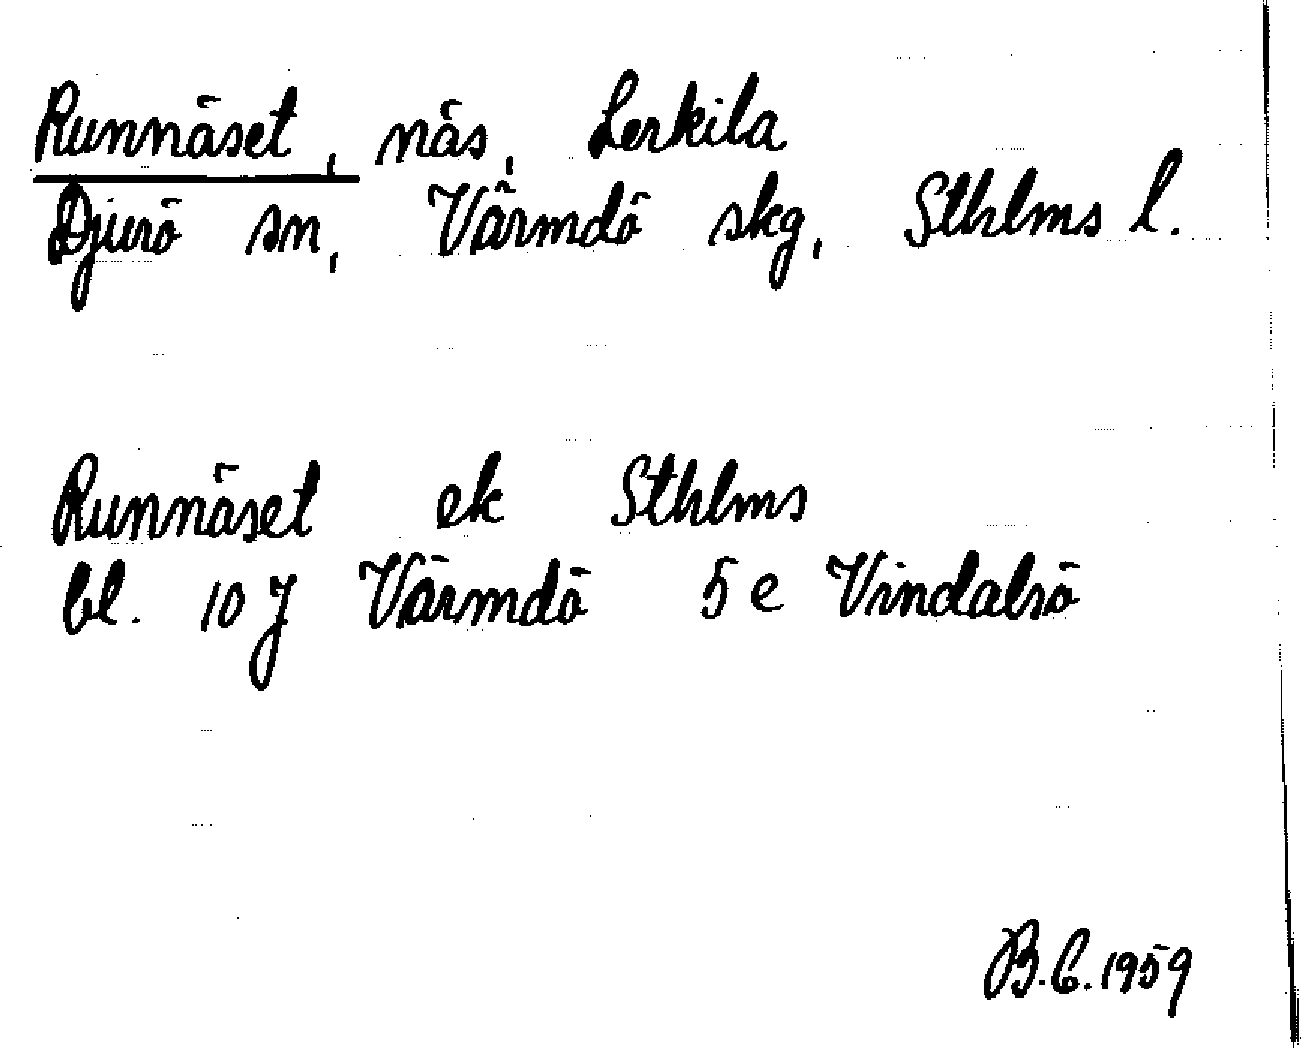 Runnäset, näs, Lerkila
Djurö sn, Värmdö skg, Sthlms l.
Runnäset ek Sthlms
bl. 10 J Värmdö 5 e Vindalsö
B.C. 1959